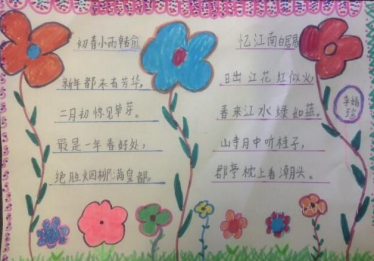 初春小雨韩愈
新年都未有芳华，
二月初惊见草芽。
最是一年春好处，
绝胜烟柳满皇都。
忆江南白居易
日出江花红似火，
春来江水绿如蓝。
山寺月中寻桂子，
郡亭枕上看潮头。